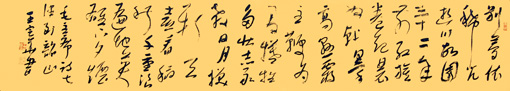 别梦依
稀咒
逝川故园
三十二年
前红旗
卷起农
奴戟黑手
高悬霸
主鞭为
有牺牲
多壮志敢
教日月换
新天
喜看稻
菽千重浪
遍地英
雄下夕烟
毛主席诗七
律到韶山